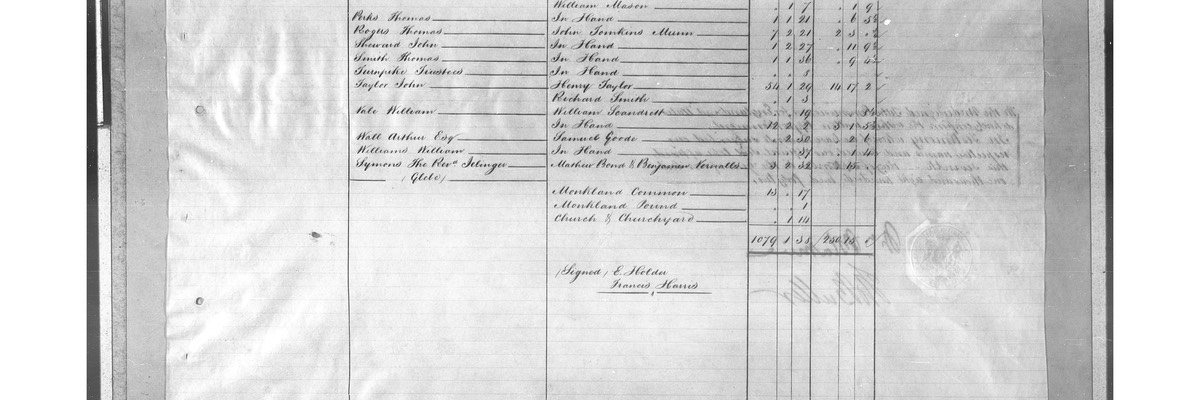 William Mason . 1 7 . 1 9½
Perks Thomas In Hand 1 1 21 . 6 5½
Rogers Thomas John Tomkins Munn 7 2 21 2 3
Sheward John In Hand 1 2 27 . 11 9½
Smith Thomas In Hand 1 1 36 . 9 4½
Turnpike Trustees In Hand . . 8
Taylor John Henry Taylor 54 1 29 14 17 2
Richard Smith . 1 3
Vale William William Scandrett . . 19
In Hand 12 2 2 3 1
Wall Arthur Esq Samuel Goode . 2 30 . 2 6
Williams William In Hand . . 37 . 1 4
Symons The Revd Jelinger Mathew Bond & Benjamin 3 2 32
(Glebe)
Monkland Common 13 . 17
Monkland Pound . . 1
Church & Churchyard . 1 14
1079 1 38 250 15
(Signed) E. Holder
Francis Harris